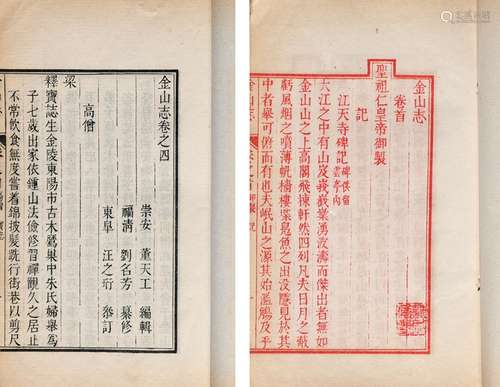 金山志
卷首
聖祖仁皇帝御製
記
江天寺碑記
大江之中有山峩峩嶪嶪湧波濤而傑出者無如
金山山之上高閣飛棟軒然四列凡夫日月之蔽
虧風烟之噴薄帆檣樓櫓黿魚之出沒隱見於其
中者舉可俯而有也夫岷山之源其始濫觴及乎
金山志卷之四
崇安 董天工 編輯
福清 劉名芳 纂修
東皐 汪之珩 叅訂
高僧
梁
釋寶誌生金陵東陽市古木鷹巢中朱氏婦舉爲
子七歲出家依鍾山法儉修習禪觀久之居止
不常飲食無度嘗着錦披髮跣行街巷以剪尺